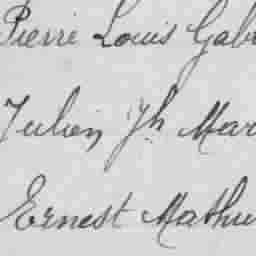 Pierre Louis Gab
Julien Jh Mar
Ernest Mathu